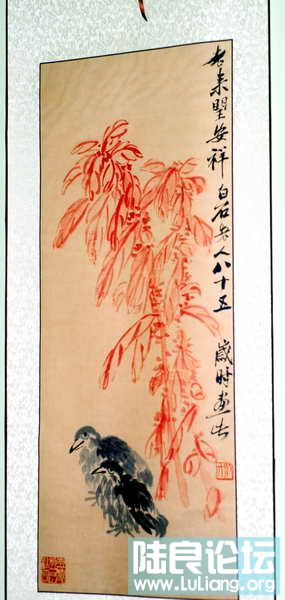 老来望安祥 白石老人八十五岁时画此
陆良论坛
www.LuLiang.org